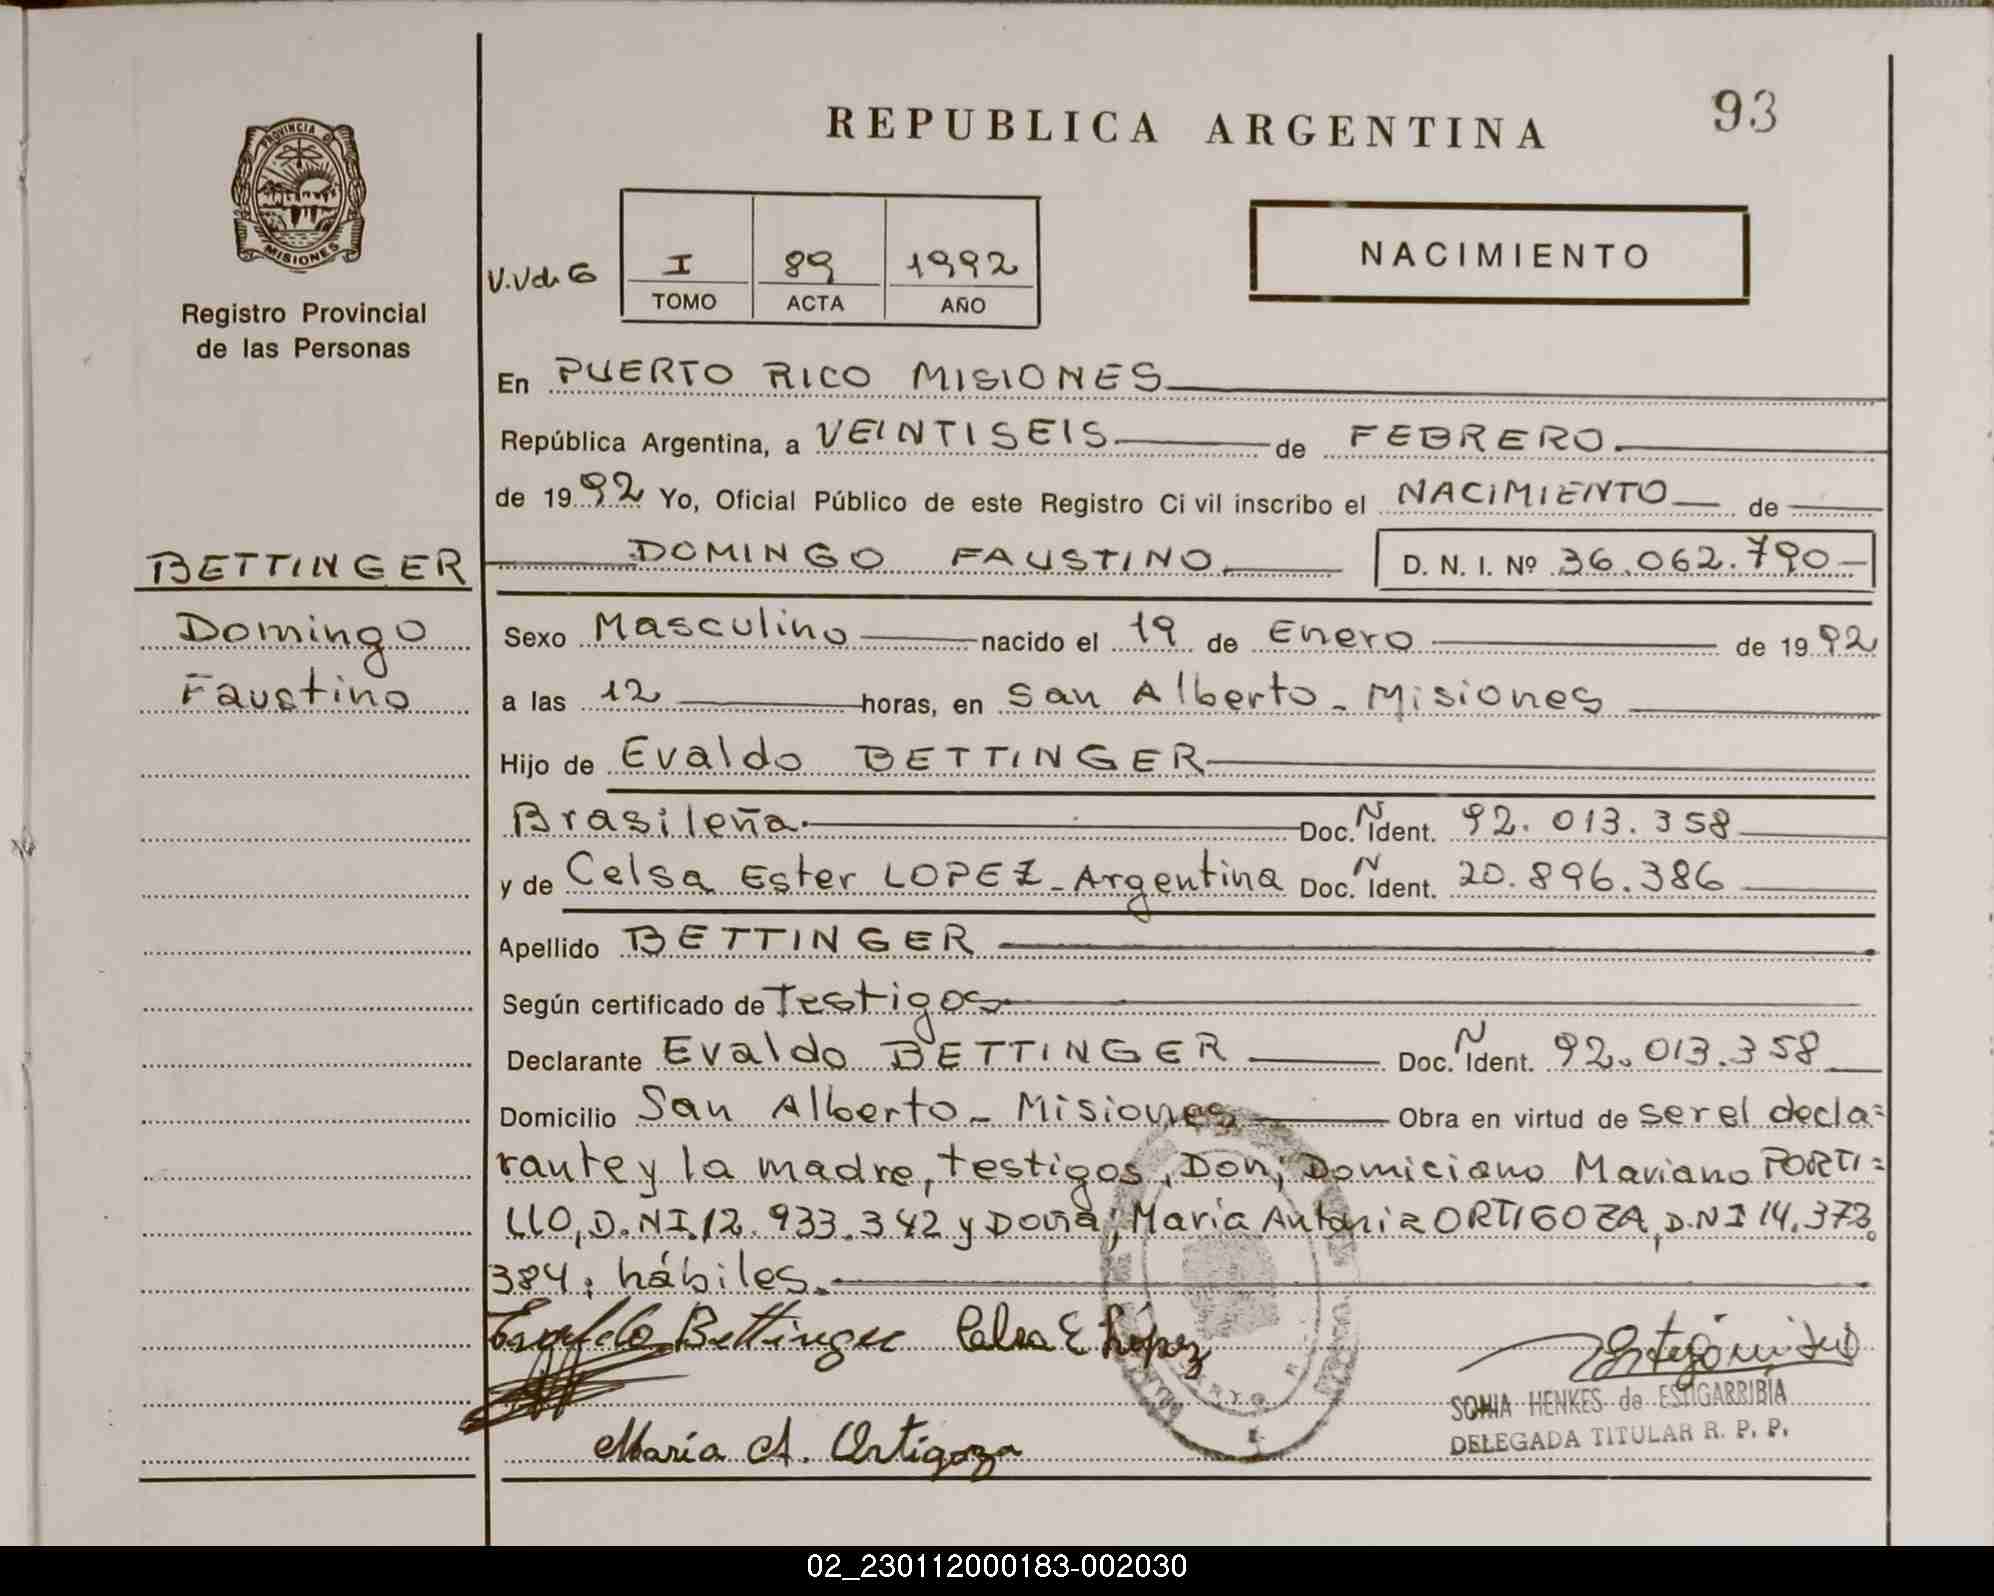 REPUBLICA ARGENTINA
93
PROVINCIA D
MISIONES
Registro Provincial
de las Personas
V.V de G
I 89 1992
TOMO ACTA AÑO
NACIMIENTO
En PUERTO RICO MISIONES
República Argentina, a VEINTISEIS de FEBRERO
de 1992 Yo, Oficial Público de este Registro Ci vil inscribo el NACIMIENTO de
DOMINGO FAUSTINO D. N. I. Nº 36.062.790
BETTINGER
Domingo
Faustino
Sexo Masculino nacido el 19 de Enero de 1992
a las 12 horas, en San Alberto - Misiones
Hijo de Evaldo BETTINGER
Brasileña Doc. N Ident. 92.013.358
y de Celsa Ester LOPEZ - Argentina Doc. N Ident. 20.896.386
Apellido BETTINGER
Según certificado de Testigos
Declarante Evaldo BETTINGER Doc. N Ident. 92.013.358
Domicilio San Alberto - Misiones Obra en virtud de ser el decla=
rante y la madre, testigos, Don; Domiciano Mariano PORTI=
LLO, D.N.I. 12.933.342 y Doña; María Antonia ORTIGOZA, D.N.I 14.373.
384; hábiles.
Evaldo Bettinger Celsa E López
María A. Ortigoza
SONIA HENKES de ESTIGARRIBIA
DELEGADA TITULAR R. P. P.
02_230112000183-002030